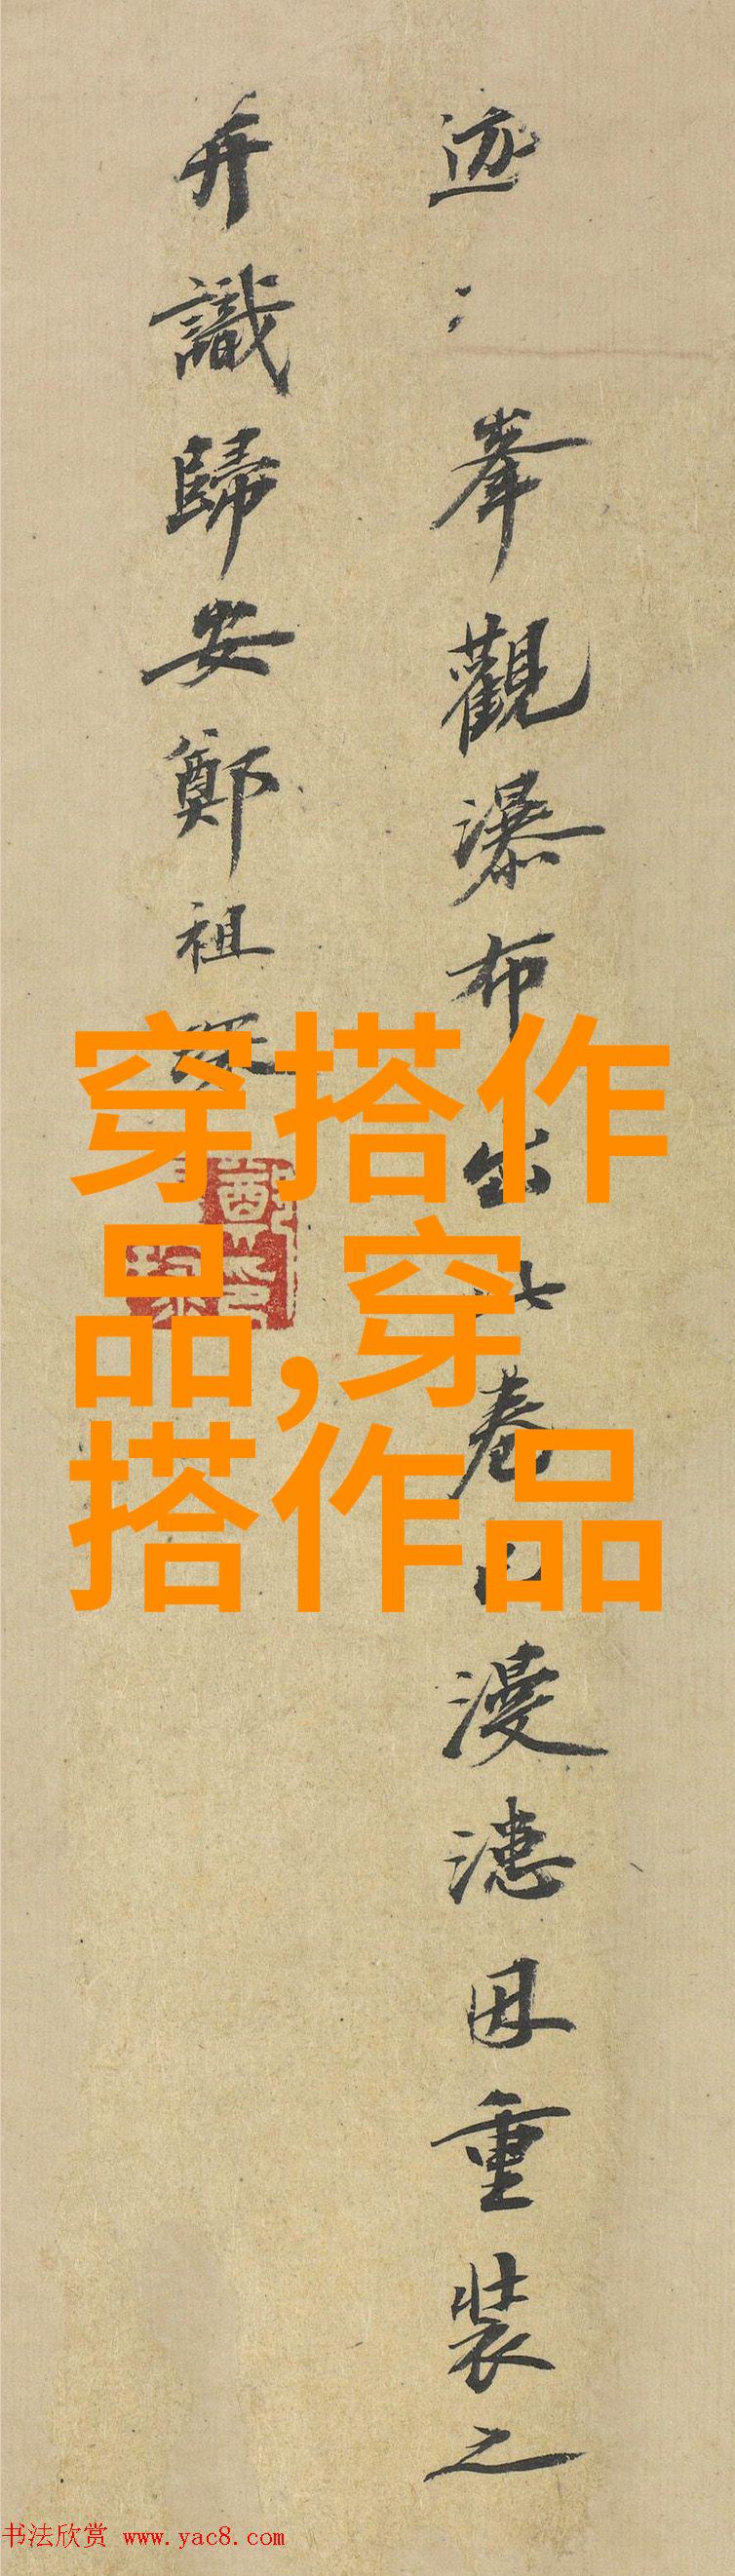 迹〻峯觀瀑布出此卷已漫漶因重装之
弁識歸安鄭祖琛
穿搭作
品,穿
搭作品
书法欣赏 www.yac8.com